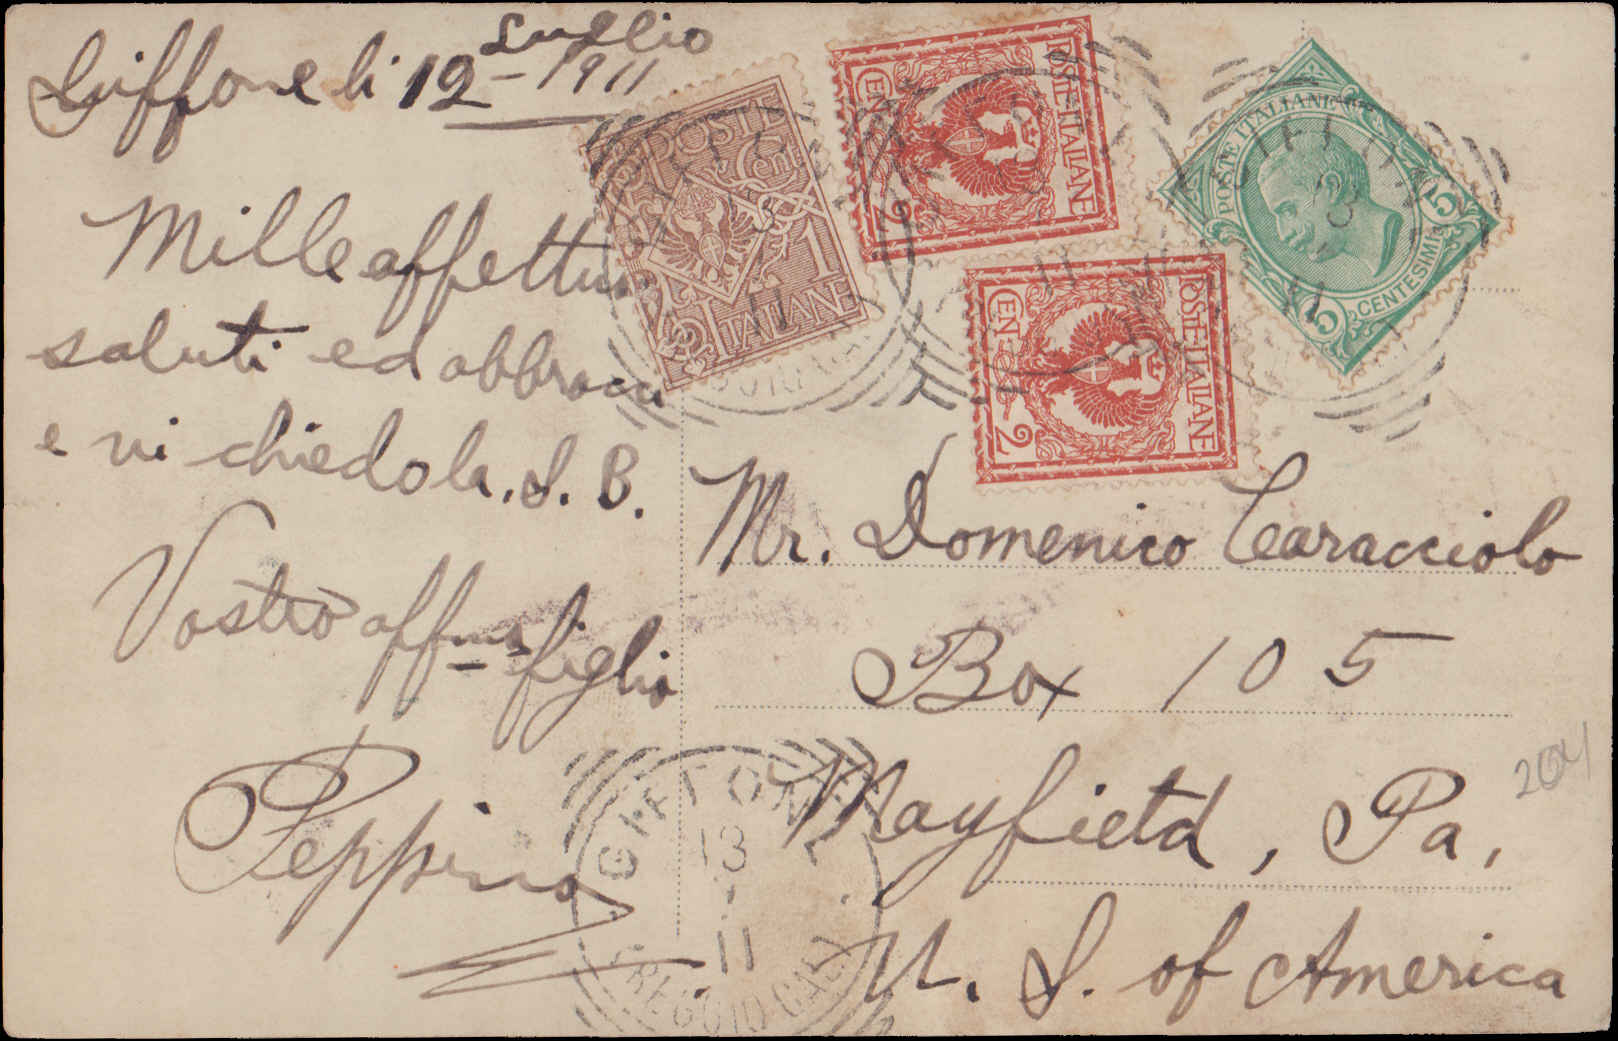 Giffone li 12 Luglio - 1911
Mille affettuo
saluti ed abbracci
e vi chiedo la. S. B.
Vostro affmo figlio
Peppino
POSTE
Cent
1
ITALIANE
POSTE ITALIANE
CEN
2
POSTE ITALIANE
CEN
2
POSTE ITALIANE
5
CENTESIMI
5
11
11
13
11
Mr. Domenico Caracciolo
Box 105
Mayfield, Pa,
U. S. of America
204
GIFFONE
13
11
(REGGIO CAL)